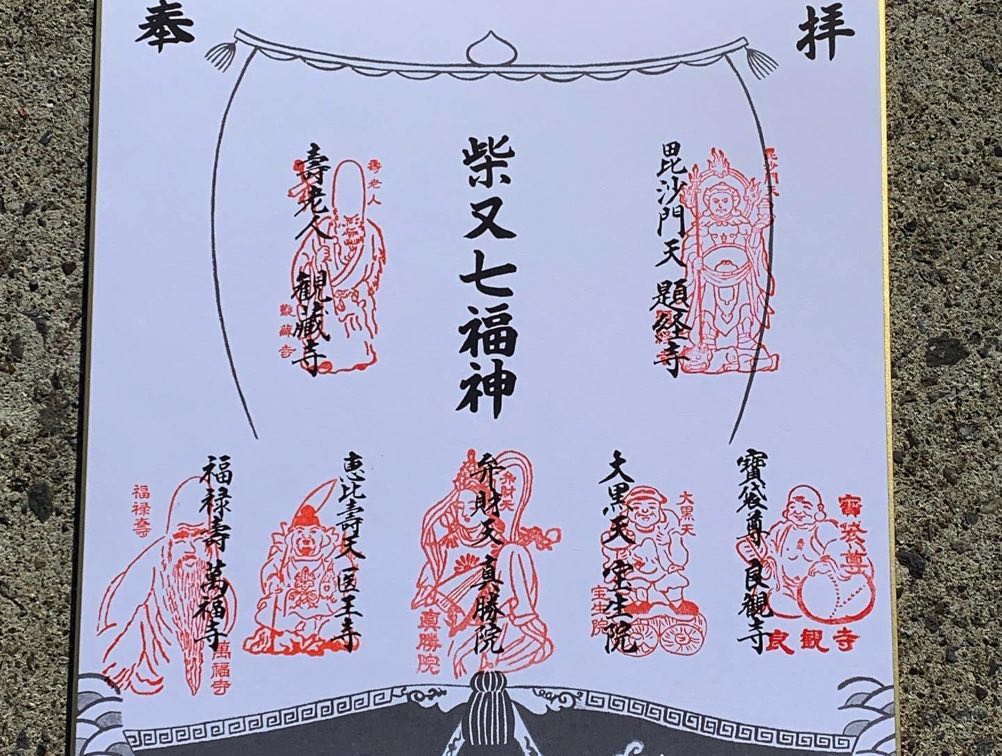 奉
拝
柴又七福神
毘沙門天 題経寺
毘沙門天
壽老人 観蔵寺
壽老人
寶袋尊 良観寺
寳袋尊
良観寺
大黒天 宝生院
大黒天
宝生院
弁財天 真勝院
弁財天
真勝院
恵比壽天 医王寺
福禄壽 萬福寺
福禄壽
萬福寺